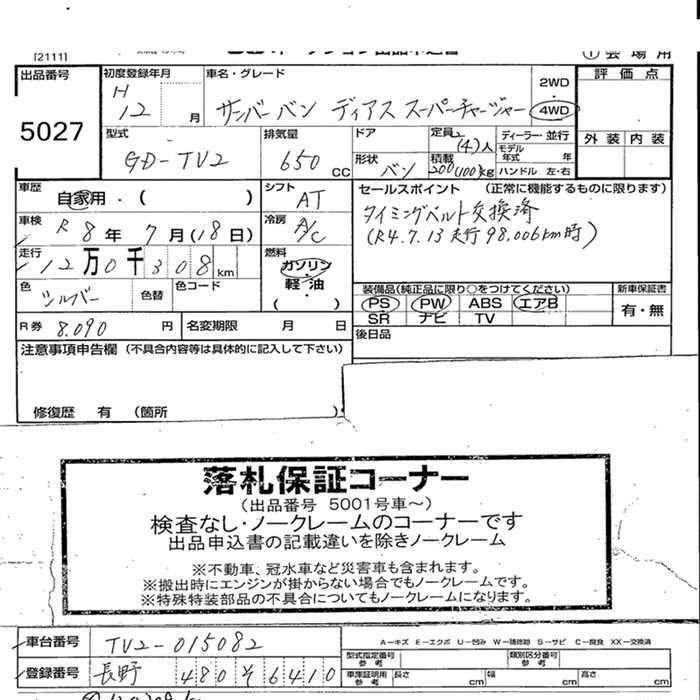 [2111]
① 会場用
出品番号
5027
初度登録年月
H
12 月
車名・グレード
サンバー バン ディアス スーパーチャージャー
2WD
・
4WD
評価点
外装 内装
型式
GD-TV2
排気量
650 CC
ドア
形状
バン
定員 2 (4)人
積載 200(100)kg
ディーラー・並行
モデル年式 年
ハンドル 左・右
車歴
自家用・( )
シフト
AT
セールスポイント (正常に機能するものに限ります)
タイミングベルト交換済
(R4.7.13 走行 98,006km時)
車検
R 8年 7月(18日)
冷房
A/C
走行
12万0千308km
燃料
ガソリン
・
軽油
( )
色
シルバー
色替
色コード
装備品(純正品に限り○をつけてください)
PS PW ABS エアB
SR ナビ TV
新車保証書
有・無
R券 8.090 円
名変期限 月 日
後日品
注意事項申告欄 (不具合内容等は具体的に記入して下さい)
修復歴 有 (箇所 )
落札保証コーナー
(出品番号 5001号車~)
検査なし・ノークレームのコーナーです
出品申込書の記載違いを除きノークレーム
※不動車、冠水車など災害車も含まれます。
※搬出時にエンジンが掛からない場合でもノークレームです。
※特殊特装部品の不具合についてもノークレームになります。
車台番号 TV2-015082
A-キズ E-エクボ U-凹み W-補修跡 S-サビ C-腐食 XX-交換済
型式指定番号 参考
類別区分番号 参考
登録番号 長野 480 そ 6410
車庫証明用 参考
長さ cm 幅 cm 高さ cm